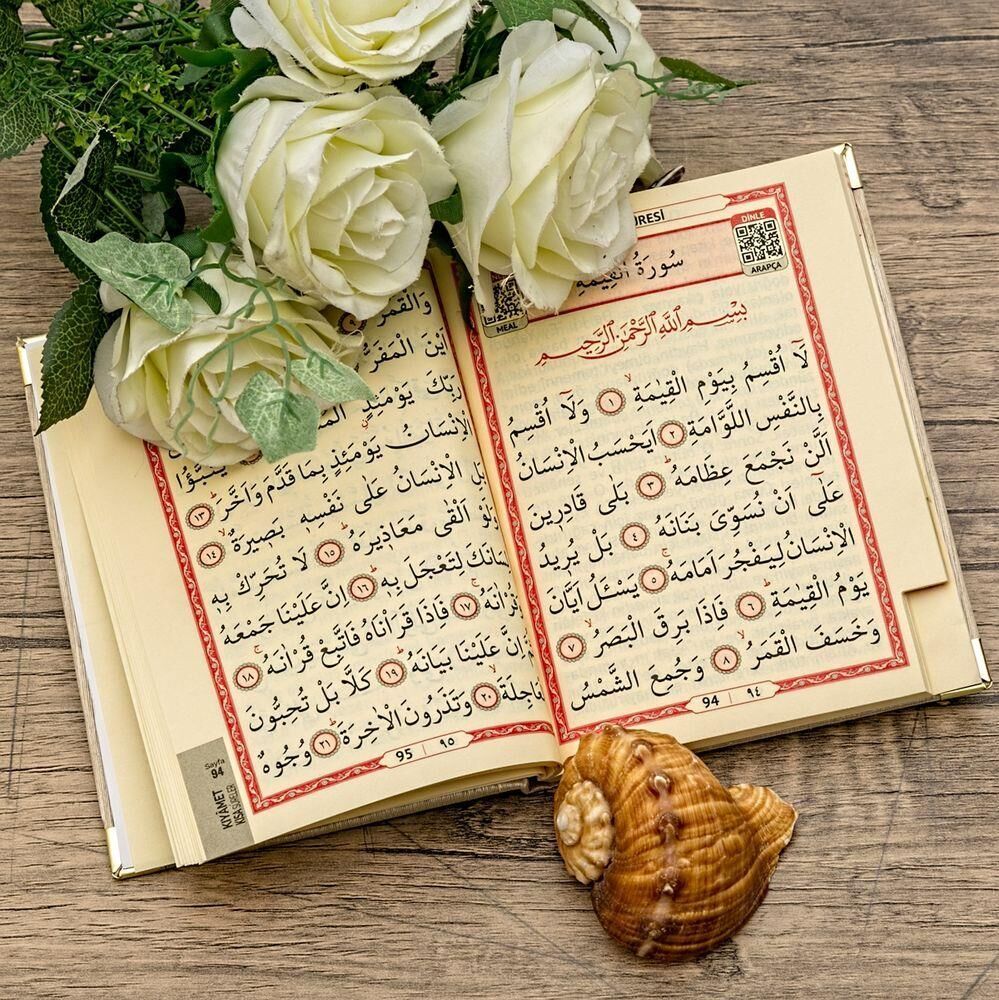 DİNLE
ARAPÇA
MEAL
بِسْمِ اللّٰهِ الرَّحْمٰنِ الرَّحِيمِ
لَٓا اُقْسِمُ بِيَوْمِ الْقِيٰمَةِۙ ﴿١﴾ وَلَٓا اُقْسِمُ
بِالنَّفْسِ اللَّوَّامَةِ ﴿٢﴾ اَيَحْسَبُ الْاِنْسَانُ
اَلَّنْ نَجْمَعَ عِظَامَهُۜ ﴿٣﴾ بَلٰى قَادِرِينَ
عَلٰٓى اَنْ نُسَوِّيَ بَنَانَهُ ﴿٤﴾ بَلْ يُرِيدُ
الْاِنْسَانُ لِيَفْجُرَ اَمَامَهُۚ ﴿٥﴾ يَسْـَٔلُ اَيَّانَ
يَوْمُ الْقِيٰمَةِۜ ﴿٦﴾ فَاِذَا بَرِقَ الْبَصَرُۙ ﴿٧﴾
وَخَسَفَ الْقَمَرُۙ ﴿٨﴾ وَجُمِعَ الشَّمْسُ
94 | ٩٤
وَالْقَمَرُ
اَيْنَ الْمَفَرُّ
رَبِّكَ يَوْمَئِذٍ
الْاِنْسَانُ يَوْمَئِذٍ بِمَا قَدَّمَ وَاَخَّرَۜ ﴿١٣﴾
بَلِ الْاِنْسَانُ عَلٰى نَفْسِه۪ بَص۪يرَةٌۙ ﴿١٤﴾
وَلَوْ اَلْقٰى مَعَاذ۪يرَهُۜ ﴿١٥﴾ لَا تُحَرِّكْ بِه۪
لِتَعْجَلَ بِه۪ۜ ﴿١٦﴾ اِنَّ عَلَيْنَا جَمْعَهُ
﴿١٧﴾ فَاِذَا قَرَأْنَاهُ فَاتَّبِعْ قُرْاٰنَهُۚ ﴿١٨﴾
اِنَّ عَلَيْنَا بَيَانَهُۜ ﴿١٩﴾ كَلَّا بَلْ تُحِبُّونَ
﴿٢٠﴾ وَتَذَرُونَ الْاٰخِرَةَۜ ﴿٢١﴾ وُجُوهٌ
95 | ٩٥
Sayfa
94
KIYÂMET
KISA SÛRELER